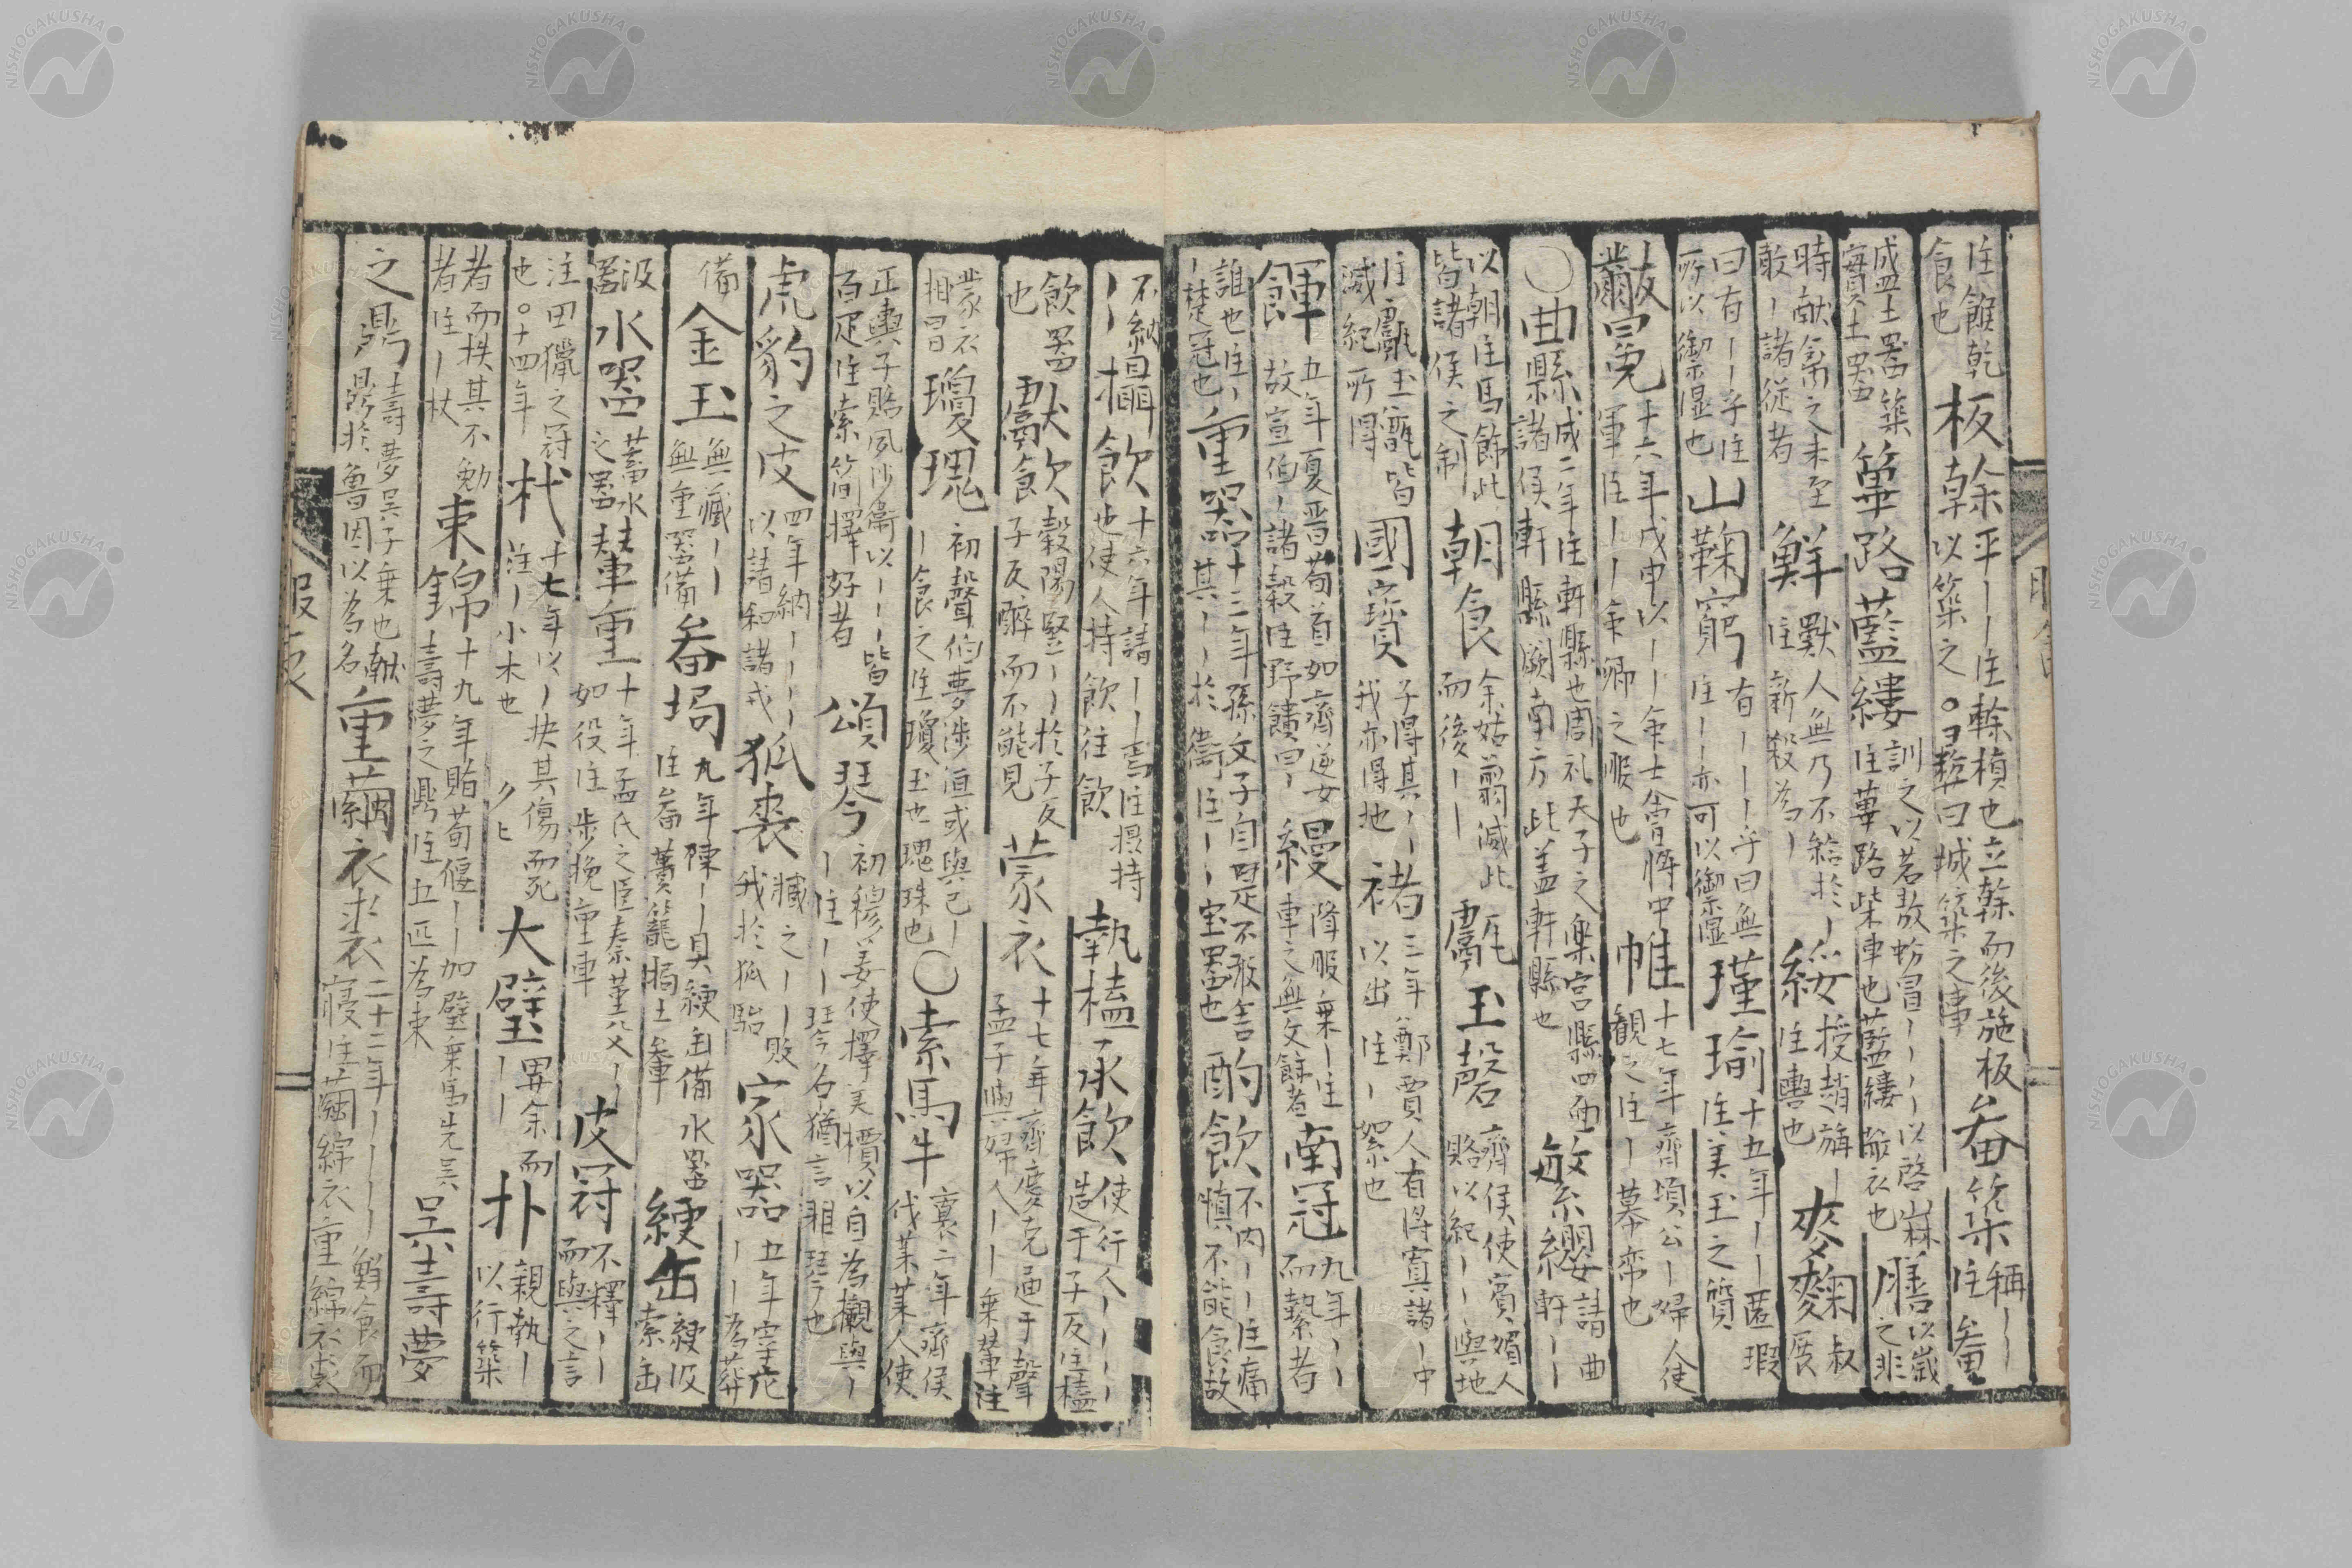 注餱乾食也 板榦 平——注榦楨也立榦而後施板以築之。曰𩏂曰城築之事 畚築 稱——注畚
盛土器築實土器 篳路藍縷 訓之以若敖蚡冒———以啓山林注篳路柴車也藍縷敝衣也 膳 以歲之非
時献禽之未至敢—諸從者 鮮 獸人無乃不給於—注新殺為— 綏 授趙旃—注轡也 麥麴 叔展
曰有——乎注所以禦湿也 山鞠窮 有———乎曰無注——亦可以禦湿 瑾瑜 十五年——匿瑕注美玉之質
黻冕 十六年戊申以——命士會将中軍注——命卿之服也 帷 十七年齊頃公—婦人使觀之注—幕帟也
〇曲縣 成二年注軒縣也周礼天子之樂宮縣四面諸侯軒縣闕南方此盖軒縣也 繁纓 請曲軒——
以朝注馬飾此皆諸侯之制 朝食 余姑翦滅此而後—— 甗玉磬 齊侯使賓媚人賂以紀——與地
注甗玉甑皆滅紀所得 國寶 子得其—我亦得地 褚 三年鄭賈人有将寘諸—中以出注—絮也
餫 五年夏晋荀首如齊逆女故宣伯—諸穀注野饋曰— 縵 降服乗—注車之無文餙者 南冠 九年——而縶者
誰也注—楚冠也 重器 十三年孫文子自是不敢舍其—於衛注——宝器也 酌飲 不内——注痛慎不能食故
不納— 攝飲 十六年請——焉注摂持也使人持飲往飲 執榼承飲 使行人————造于子反注榼
飲器也 獻飲 穀陽竪——於子反子反醉而不能見 蒙衣 十七年齊慶克通于聲孟子與婦人——乗輦注
蒙衣相曰 瓊瑰 初聲伯夢涉洹或與己—食之注瓊玉也瑰珠也 〇索馬牛 襄二年齊侯伐莱莱人使
正輿子賂夙沙衛以———皆百疋注索簡擇好者 頌琴 初穆姜使擇美檟以自為櫬與—注——琴名猶言雅琴也
虎豹之皮 四年納————以請和諸戎 狐裘 臧之——敗我於狐駘 家器 五年宰庀——為葬
備 金玉 無藏——無重器備 畚挶 九年陳——具綆缶備水器注畚蕢籠挶土轝 綆缶 綆汲索缶
汲器 水器 蓄水之器 輦重 十年孟氏之臣秦堇父——如役注步挽重車 皮冠 不釋——而與之言
注田獵之冠也。十四年 杙 十七年以—抉其傷而死注—小木也 大璧 畀余而—— 扑 親執—以行築
者而抶其不勉者注—杖 束錦 十九年賄荀偃——加璧乗馬先吳壽夢之鼎注五匹為束 呉壽夢
之鼎 壽夢吳子乗也献鼎於魯因以為名 重繭衣裘 二十二年————鮮食而寢注繭綿衣重綿衣裘